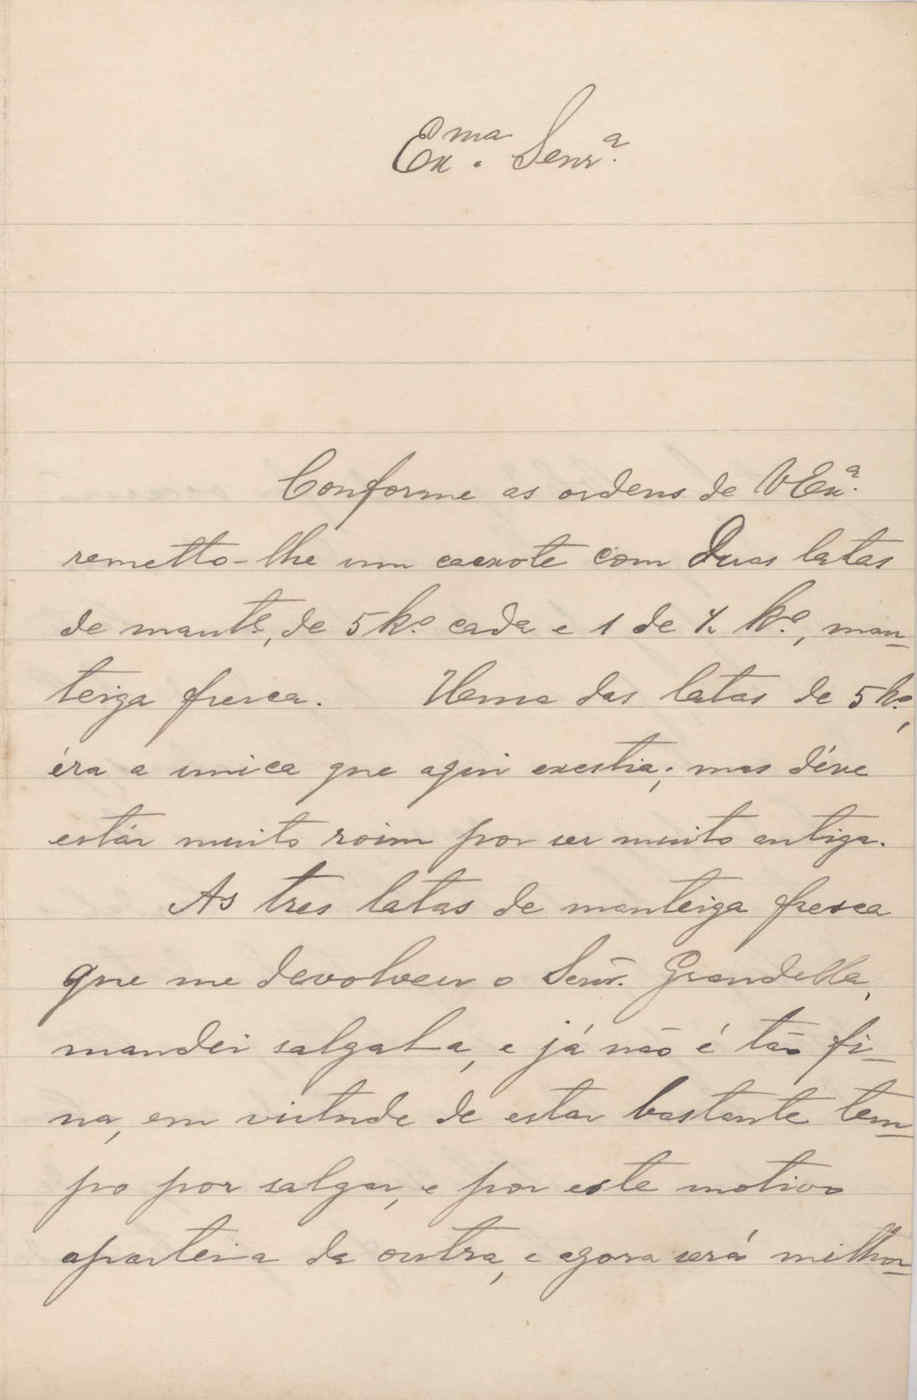 Ex.ma Senr.a
Conforme as ordens de VEx.a
remetto-lhe um caexote com duas latas
de mant.a, de 5 k.o cada e 1 de ½ k.o, man-
teiga fresca. Uma das latas de 5 k.o,
éra a unica que aqui exestia; mas déve
estár muito roim por ser muito antiga.
As tres latas de manteiga fresca
que me devolveu o Senr. Grandella,
mandei salgal-a, e já não é tão fi-
na, em virtude de estar bastante tem-
po por salgar, e por este motivo
aparteia da outra, e agora será milhor